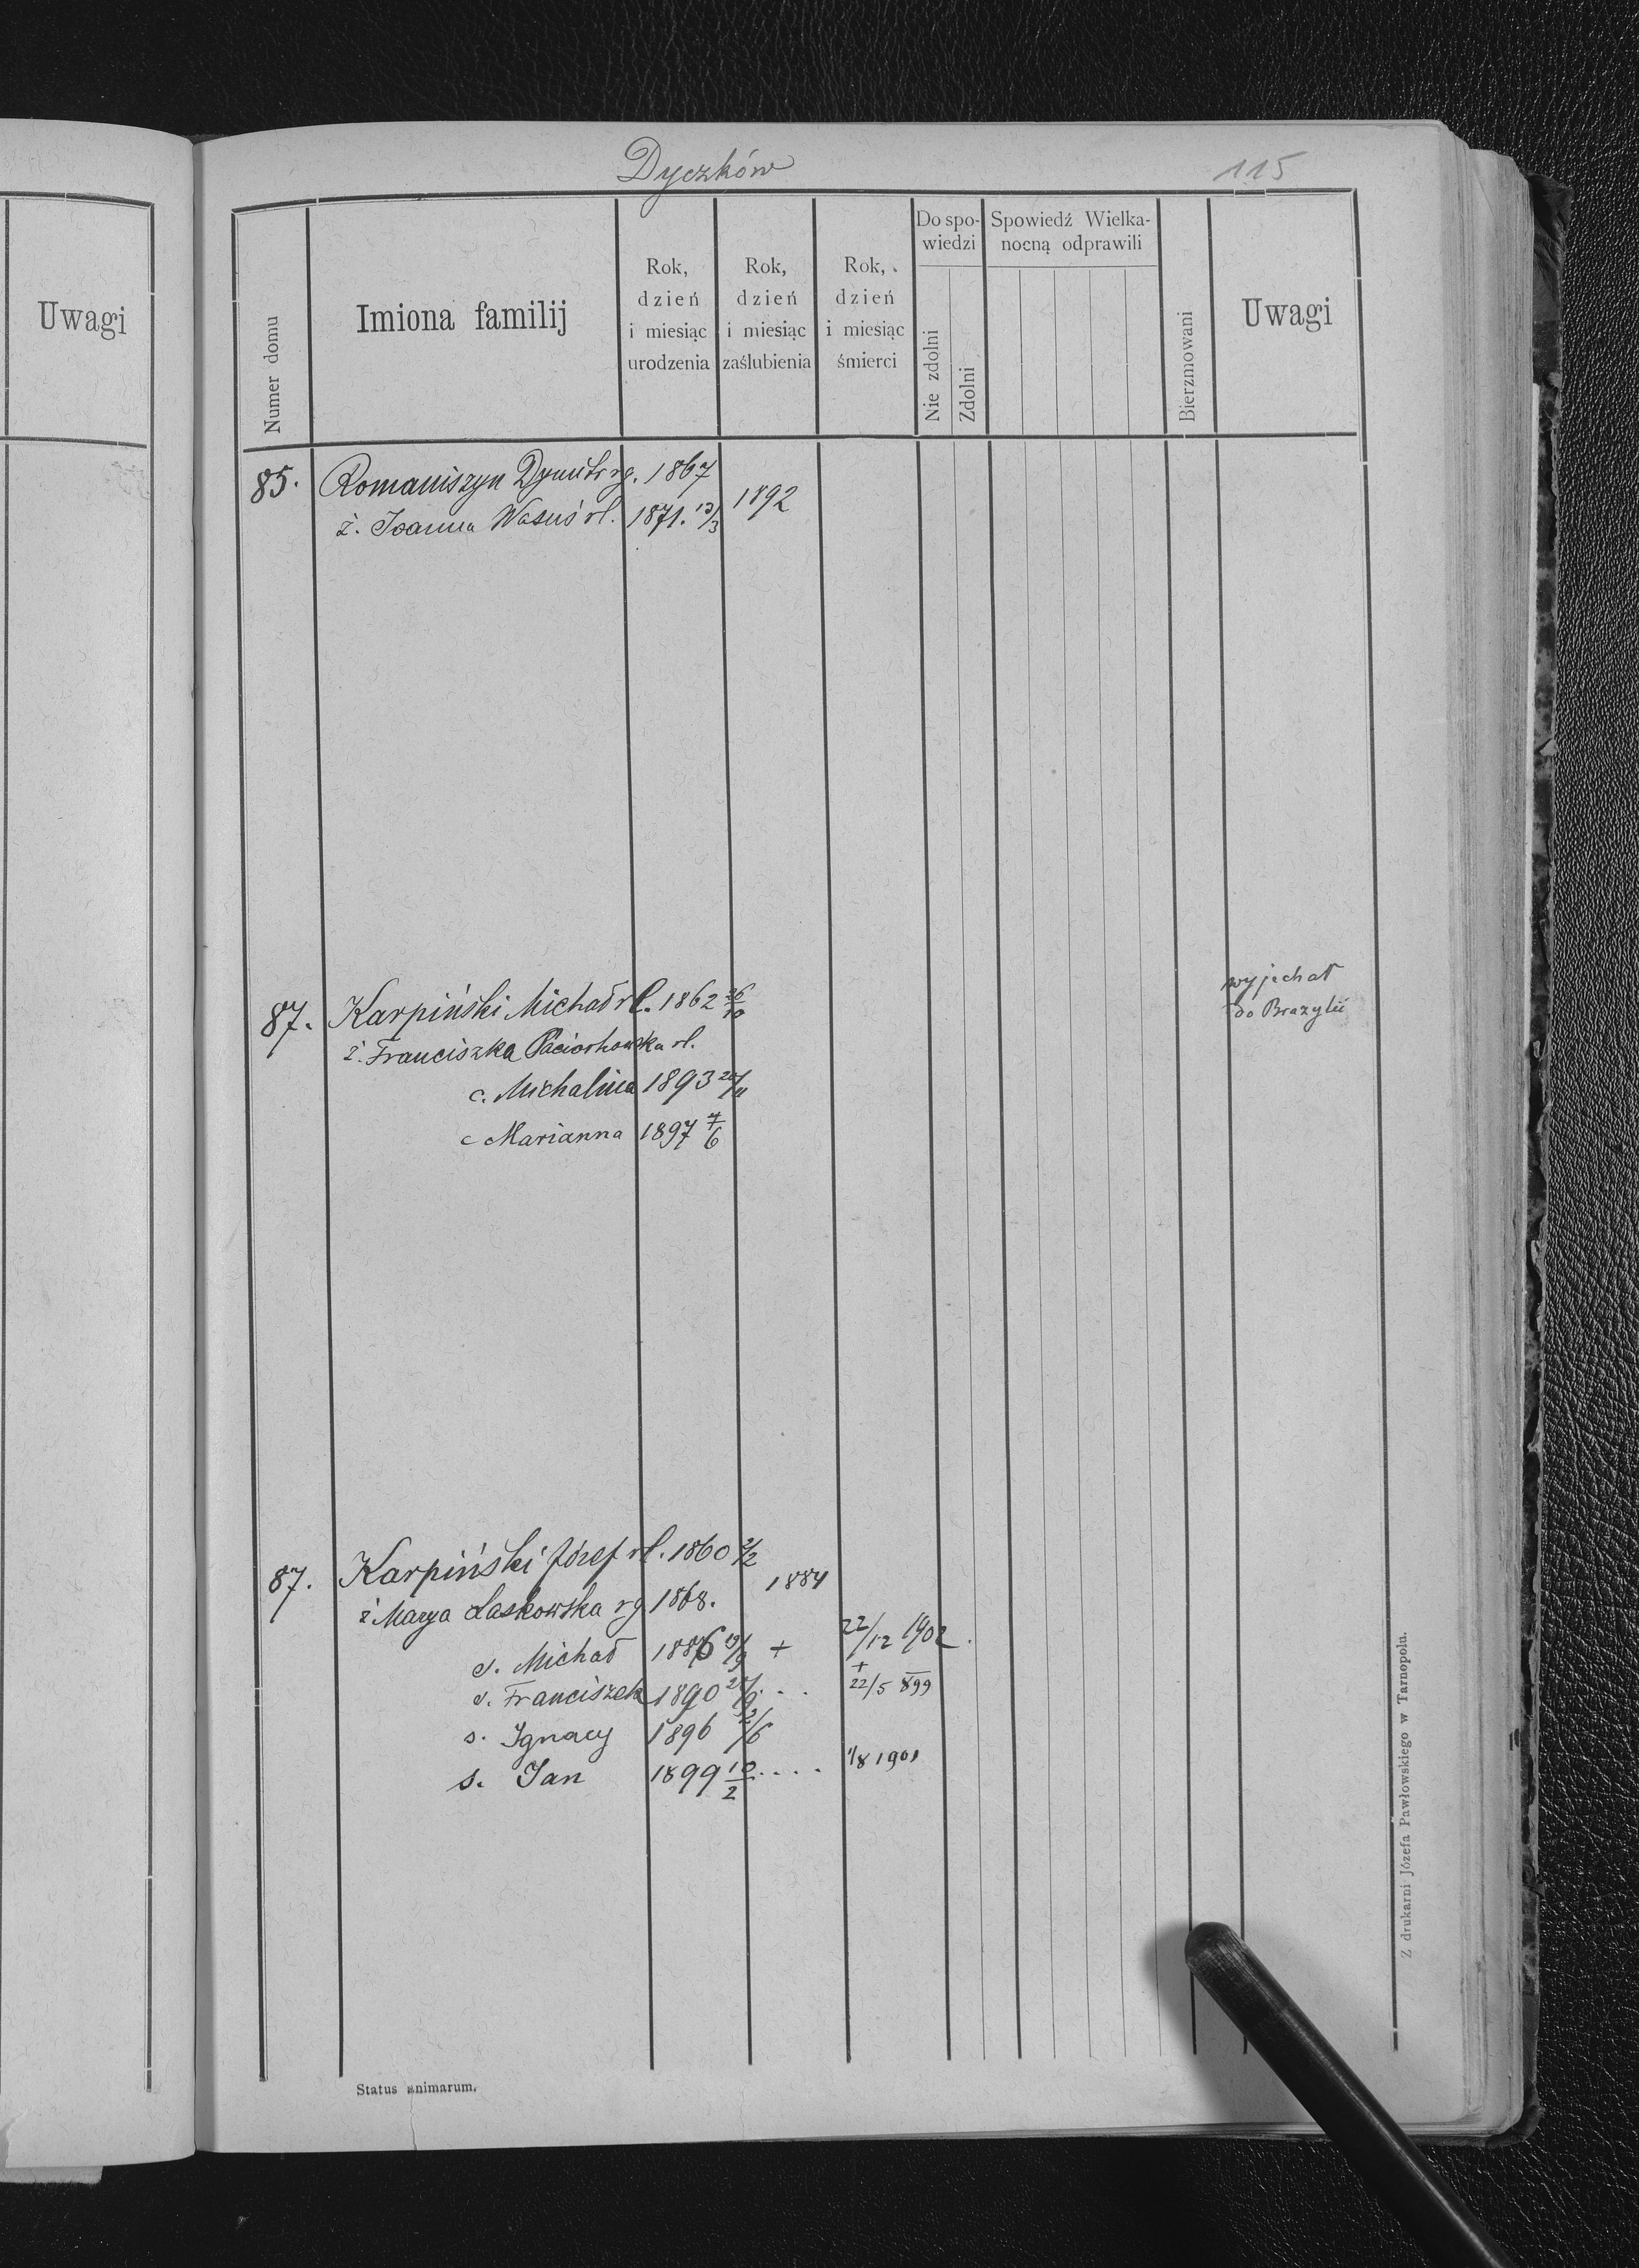 Uwagi
Dyczków
115
Numer domu
Imiona familij
Rok,
dzień
i miesiąc
urodzenia
Rok,
dzień
i miesiąc
zaślubienia
Rok,
dzień
i miesiąc
śmierci
Do spo-
wiedzi
Nie zdolni
Zdolni
Spowiedź Wielka-
nocną odprawili
Bierzmowani
Uwagi
85. Romaniszyn Dymitr rg. 1867
ż. Joanna rl. 1871. 13/3 1892
87. Karpiński Michał rl. 1862 26/10 wyjechał
do Brazylii
ż. Franciszka Paciorkowska rl.
c. Michalina 1893
c Marianna 1897 7/6
87. Karpiński Józef rl. 1860 2/2
ż Marya Laskowska rg 1868. 1884
s. Michał 1886 19/9 + 22/12 1902.
s. Franciszek 1890 + 22/5 899
s. Ignacy 1896
s. Jan 1899 10/2 .... 1/8 1901
Status animarum.
Z drukarni Józefa Pawłowskiego w Tarnopolu.